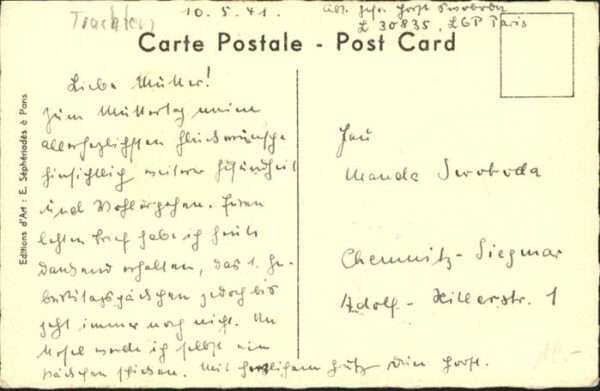 Trachten
10.5.41.
Abs. Gefr. Horst Swoboda
L 30835, LGP Paris
Carte Postale - Post Card
Editions d'Art : E. Séphériadès à Paris
Liebe Mutter!
Zum Muttertag meine
allerherzlichsten Glückwünsche
hinsichtlich weiterer Gesundheit
und Wohlergehen. Euren
letzten Brief habe ich heute
dankend erhalten, das 1. Ge-
burtstagspäckchen jedoch bis
jetzt immer noch nicht. An
werde ich selbst ein
Päckchen schicken. Mit herzlichem Gruß Dein Horst.
Frau
Swoboda
Chemnitz-Siegmar
Adolf-Hitlerstr. 1